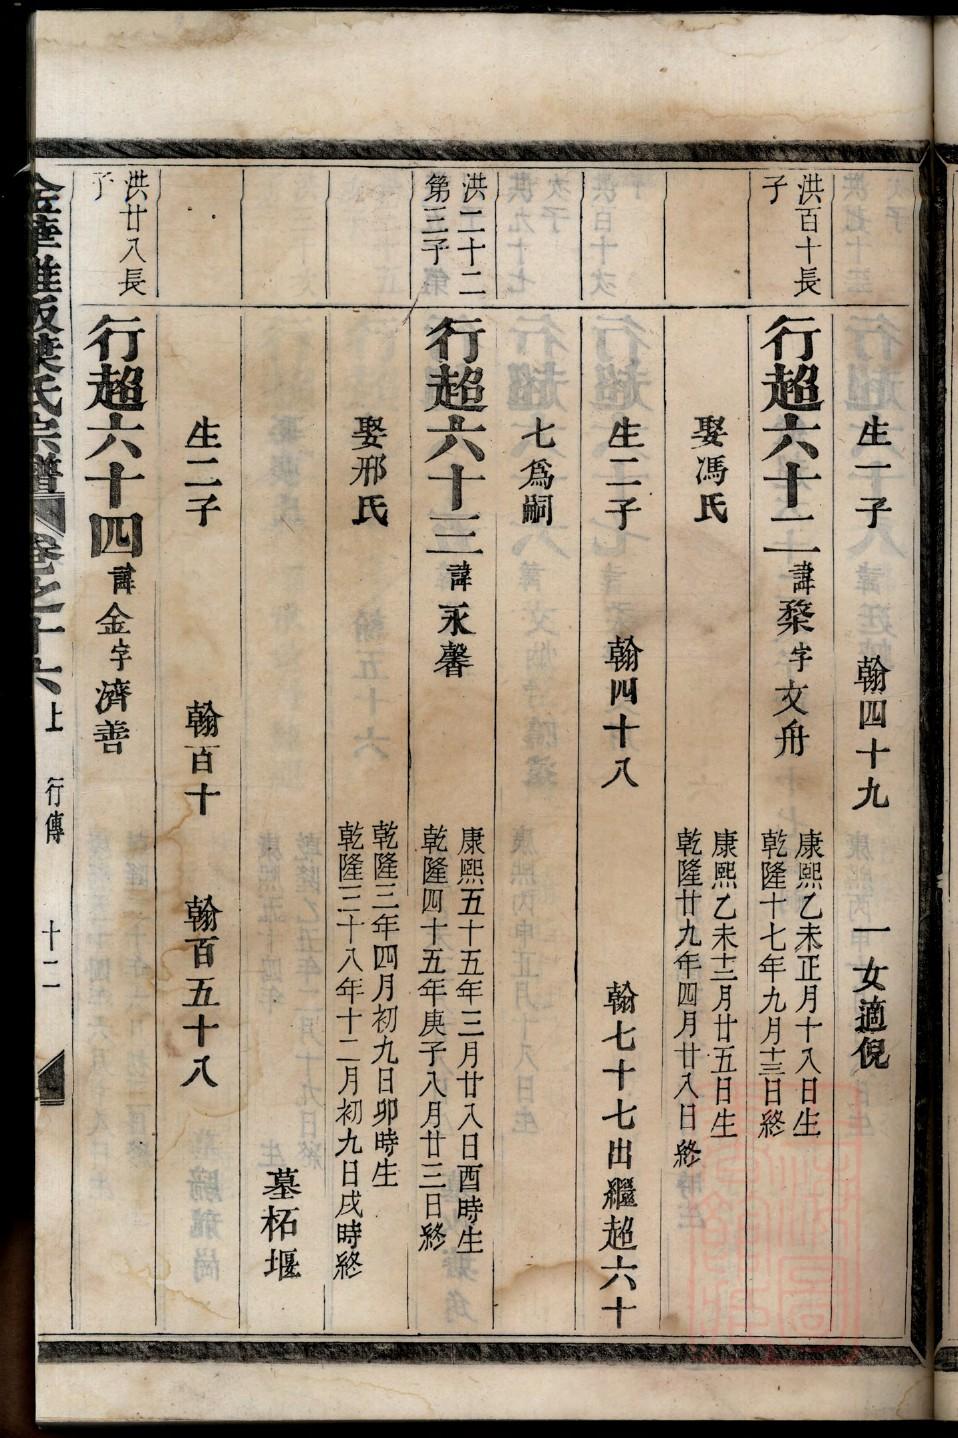 生一子　翰四十九　一女適倪
洪百十長子
行超六十二　諱榮字文舟　康熙乙未正月十八日生
乾隆十七年九月十三日終
娶馮氏　康熙乙未十二月廿五日生
乾隆廿九年四月廿八日終
生二子　翰四十八　翰七十七出繼超六十
七爲嗣
洪二十二第三子
行超六十三　諱永馨　康熙五十五年三月廿八日酉時生
乾隆四十五年庚子八月廿三日終
娶邢氏　乾隆三年四月初九日卯時生
乾隆三十八年十二月初九日戌時終
墓柘堰
生二子　翰百十　翰百五十八
洪廿八長子
行超六十四　諱金字濟善
葉氏宗譜　卷之十六上　行傳　十二